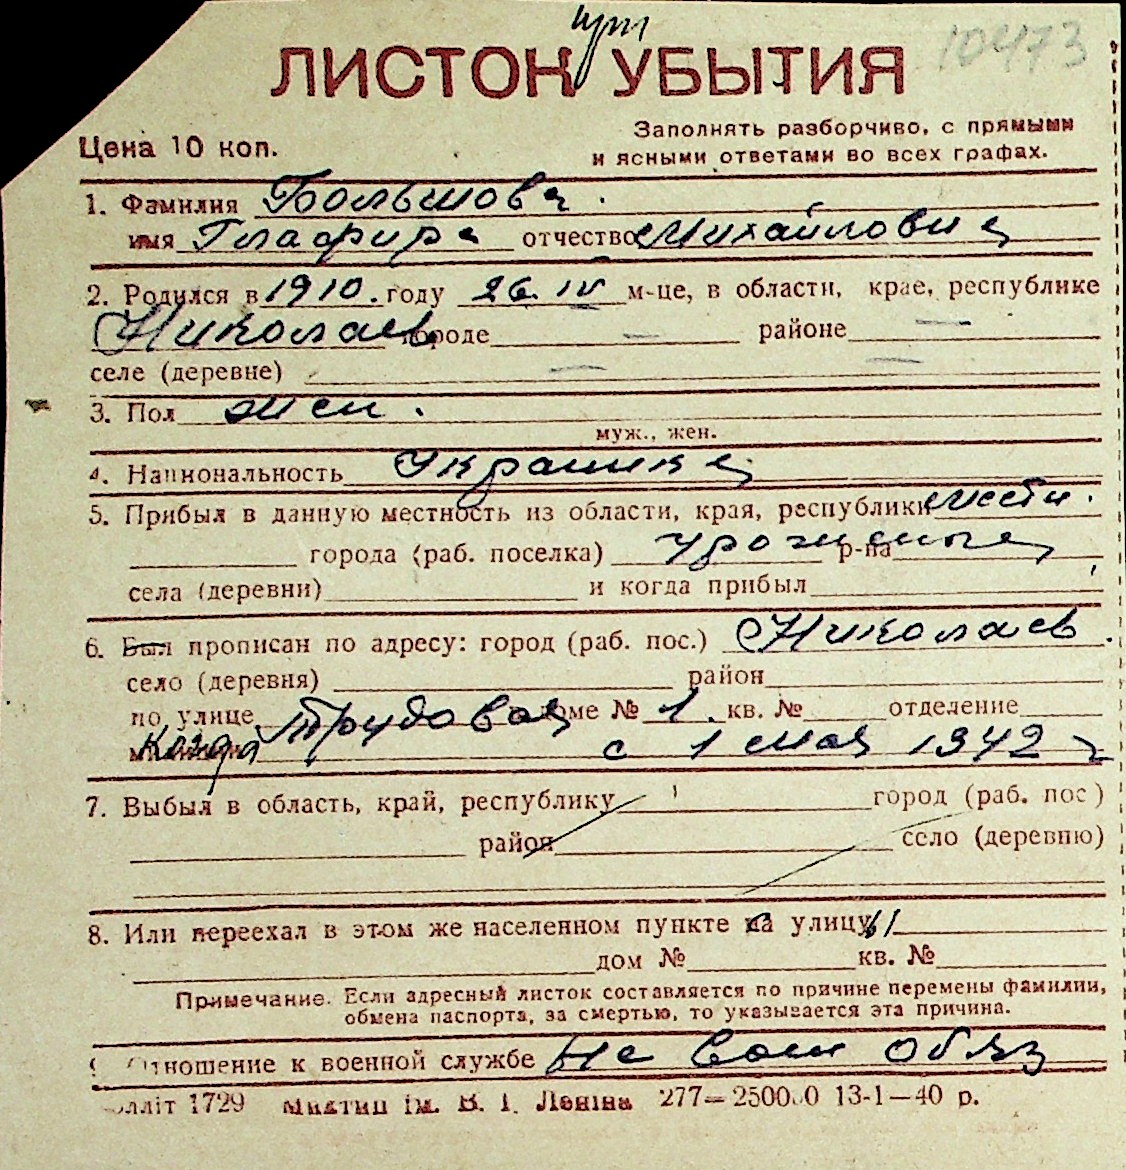 при
ЛИСТОК УБЫТИЯ 10473
Цена 10 коп.
Заполнять разборчиво, с прямыми
и ясными ответами во всех графах.
1. Фамилия Большова
имя Глафира отчество Михайловна
2. Родился в 1910. году 26. IV м-це, в области, крае, республике
Николаев городе — районе —
селе (деревне) — —
3. Пол жен.
муж., жен.
4. Национальность Украинка
5. Прибыл в данную местность из области, края, республики местн.
города (раб. поселка) уроженка р-на
села (деревни) и когда прибыл
6. Был прописан по адресу: город (раб. пос.) Николаев.
село (деревня) район
по улице Трудовая доме № 1. кв. № отделение
Когда с 1 мая 1942 г
7. Выбыл в область, край, республику город (раб. пос)
район село (деревню)
8. Или переехал в этом же населенном пункте на улицу
дом № кв. №
Примечание. Если адресный листок составляется по причине перемены фамилии,
обмена паспорта, за смертью, то указывается эта причина.
Отношение к военной службе Не воен обяз
1729 ім. В. І. Леніна 277—250000 13-1—40 р.